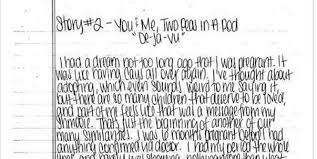 Story #2 - You & Me, Two Peas In A Pod
"De-Ja-Vu"
I had a dream not too long ago that I was pregnant. It
was like having Caus all over again. I've thought about
adopting, which even sounds weird to me saying it,
but there are so many children that deserve to be loved,
and part of me feels like that was a message from my
. That's just the beginning of another of our
many similarities. I was 6 months pregnant before I had
anything confirmed via doctor. I had my period the whole